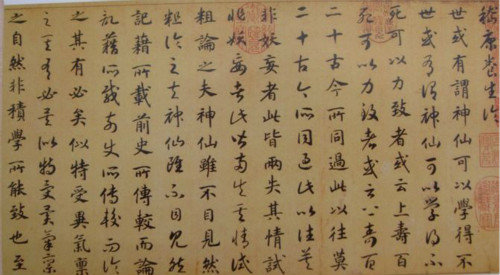 嵇康養生論
世或有謂神仙可以學得不
世或有謂神仙可以學得不
死可以力致者或云上壽百
死可以力致者或云上壽百
二十古今所同過此以往莫
二十古今所同過此以往莫
非妖妄者此皆兩失其情試
非妖妄者此皆兩失其情試
粗論之夫神仙雖不目見然
粗論之夫神仙雖不目見然
記籍所載前史所傳較而論
記籍所載前史所傳較而論
之其有必矣似特受異氣稟
之其有必矣似特受異氣稟
之自然非積學所能致也至